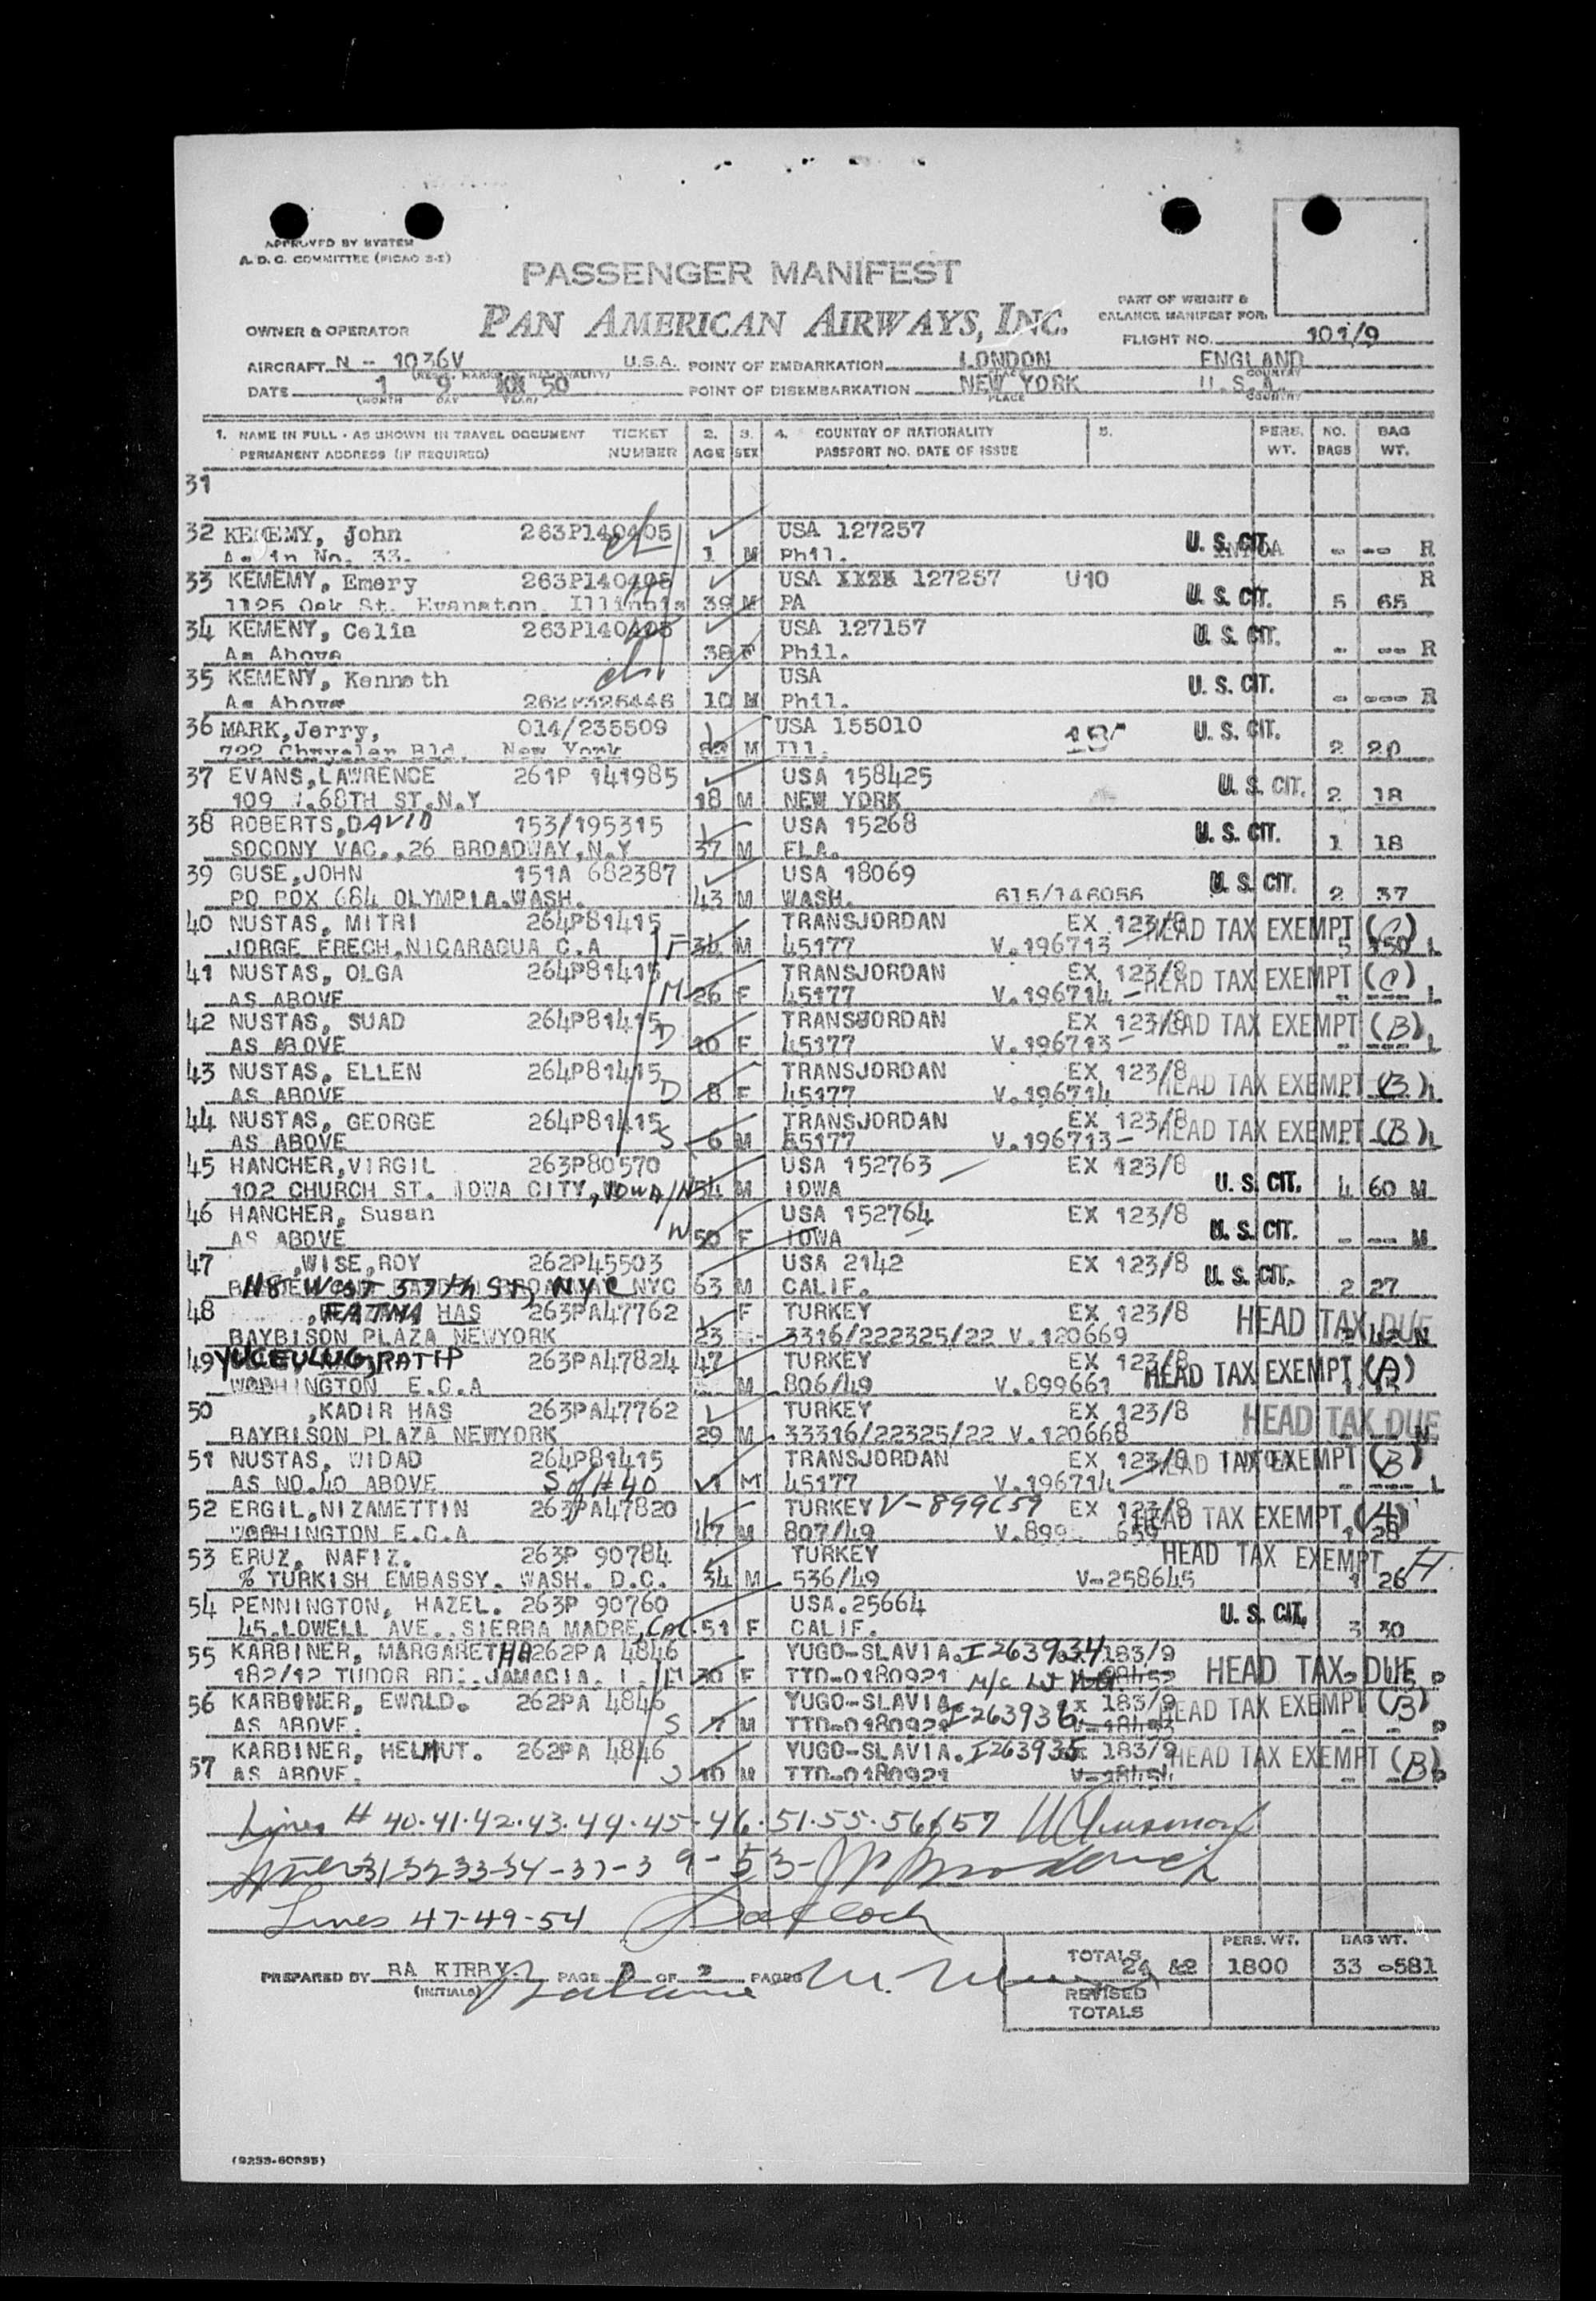 APPROVED BY SYSTEM
A. D. C. COMMITTEE (FICAO 3-2)
PASSENGER MANIFEST
PAN AMERICAN AIRWAYS, INC.
PART OF WEIGHT &
BALANCE MANIFEST FOR:
OWNER & OPERATOR
FLIGHT NO. 101/9
AIRCRAFT N - 1036V U.S.A. POINT OF EMBARKATION LONDON ENGLAND
DATE 1 9 50 POINT OF DISEMBARKATION NEW YORK U.S.A.
(MONTH DAY YEAR) PLACE COUNTRY
1. NAME IN FULL - AS SHOWN IN TRAVEL DOCUMENT TICKET 2. 3. 4. COUNTRY OF NATIONALITY 5. PERS. NO. BAG
PERMANENT ADDRESS (IF REQUIRED) NUMBER AGE SEX PASSPORT NO. DATE OF ISSUE WT. BAGS WT.
31
32 KEMEMY, John 263P140405 USA 127257 U. S. CIT.
As in No. 33. 1 M Phil. - -- R
33 KEMEMY, Emery 263P140405 USA XXXX 127257 U10 R
1125 Oak St. Evanston, Illinois 39 M PA U. S. CIT. 5 65
34 KEMENY, Celia 263P140405 USA 127157 U. S. CIT.
As Above 38 F Phil. - --- R
35 KEMENY, Kenneth USA U. S. CIT.
As Above 262P326446 10 M Phil. - --- R
36 MARK, Jerry, 014/235509 USA 155010 U. S. CIT.
722 Chrysler Bld. New York M Ill. 2 20
37 EVANS,LAWRENCE 261P 141985 USA 158425 U. S. CIT.
109 68TH ST.N.Y 18 M NEW YORK 2 18
38 ROBERTS,DAVID 153/195315 USA 15268 U. S. CIT.
SOCONY VAC.,26 BROADWAY,N.Y 37 M FLA. 1 18
39 GUSE,JOHN 151A 682387 USA 18069 U. S. CIT.
PO BOX 684 OLYMPIA.WASH. 43 M WASH. 615/146056 2 37
40 NUSTAS, MITRI 264P81415 TRANSJORDAN EX 123/8 HEAD TAX EXEMPT (C)
JORGE FRECH,NICARAGUA C.A F 34 M 45177 V.196713 5 L
41 NUSTAS, OLGA 264P81415 TRANSJORDAN EX 123/8 HEAD TAX EXEMPT (C)
AS ABOVE M 26 F 45177 V.196714 - --- L
42 NUSTAS, SUAD 264P81415 TRANSJORDAN EX 123/8 HEAD TAX EXEMPT (B)
AS ABOVE D 10 F 45177 V.196713 - --- L
43 NUSTAS, ELLEN 264P81415 TRANSJORDAN EX 123/8 HEAD TAX EXEMPT (B)
AS ABOVE D 8 F 45177 V.196714 L
44 NUSTAS, GEORGE 264P81415 TRANSJORDAN EX 123/8 HEAD TAX EXEMPT (B)
AS ABOVE S 6 M 45177 V.196713 L
45 HANCHER,VIRGIL 263P80570 USA 152763 EX 123/8
102 CHURCH ST. IOWA CITY, IOWA 54 M IOWA U. S. CIT. 4 60 M
46 HANCHER, Susan USA 152764 EX 123/8
AS ABOVE W 50 F IOWA U. S. CIT. - --- M
47 ,WISE,ROY 262P45503 USA 2142 EX 123/8
118 West 57th St, NYC NYC 63 M CALIF. U. S. CIT. 2 27
48 FATMA HAS 263PA47762 F TURKEY EX 123/8 HEAD TAX DUE
BAYBISON PLAZA NEWYORK 23 3316/222325/22 V.120669 42 N
49 YUCEULUG,RATIP 263PA47824 47 TURKEY EX 123/8 HEAD TAX EXEMPT (A)
WASHINGTON E.C.A M 806/49 V.899661
50 ,KADIR HAS 263PA47762 TURKEY EX 123/8 HEAD TAX DUE
BAYBISON PLAZA NEWYORK 29 M 33316/22325/22 V.120668 N
51 NUSTAS, WIDAD 264P81415 TRANSJORDAN EX 123/8 HEAD TAX EXEMPT (B)
AS NO.40 ABOVE S of #40 1 M 45177 V.196714 L
52 ERGIL,NIZAMETTIN 263PA47820 TURKEY V-899659 EX 123/8 HEAD TAX EXEMPT (A)
WASHINGTON E.C.A 47 M 807/49 V.899 659 1 28
53 ERUZ, NAFIZ. 263P 90784 TURKEY HEAD TAX EXEMPT
% TURKISH EMBASSY. WASH. D.C. 34 M 536/49 V-258645 1 26
54 PENNINGTON, HAZEL. 263P 90760 USA.25664 U. S. CIT.
45.LOWELL AVE., SIERRA MADRE, CAL. 51 F CALIF. 3 30
55 KARBINER, MARGARETHA 262PA 4846 YUGO-SLAVIA. I263934 183/9 HEAD TAX DUE
182/12 TUDOR RD., JAMACIA. M 30 F TTD-0180921
56 KARBINER, EWALD. 262PA 4846 YUGO-SLAVIA. I263936 183/9 HEAD TAX EXEMPT (B)
AS ABOVE. S 7 M TTD-0180921
57 KARBINER, HELMUT. 262PA 4846 YUGO-SLAVIA. I263935 183/9 HEAD TAX EXEMPT (B)
AS ABOVE. S 10 M TTD-0180921 V-18454
Lines # 40.41.42.43.44.45.46.51.55.56&57
31-32-33-34-37-39-53-
Lines 47-49-54
PREPARED BY BA KIRBY. PAGE 2 OF 2 PAGES
(INITIALS)
TOTALS 24 &2 PERS. WT. 1800 BAG WT. 33 -581
REVISED
TOTALS